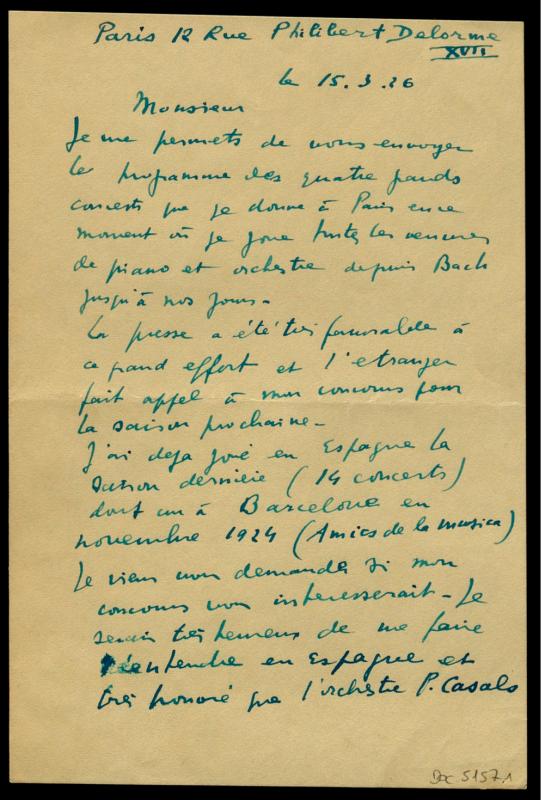 Paris 12 Rue Philibert Delorme
XVII
le 15.3.26
Monsieur
Je me permets de vous envoyer
le programme des quatre grands
concerts que je donne à Paris en ce
moment où je joue toutes les oeuvres
de piano et orchestre depuis Bach
jusqu'à nos jours -
La presse a été très favorable à
ce grand effort et l'etranger
fait appel à mon concours pour
la saison prochaine -
J'ai deja joué en Espagne la
saison dernière (14 concerts)
dont un à Barcelone en
novembre 1924 (Amics de la musica)
Je viens vous demander si mon
concours vous interesserait - Je
serais très heureux de me faire
réentendre en Espagne et
très honoré que l'orchestre P. Casals
Doc 5157,1